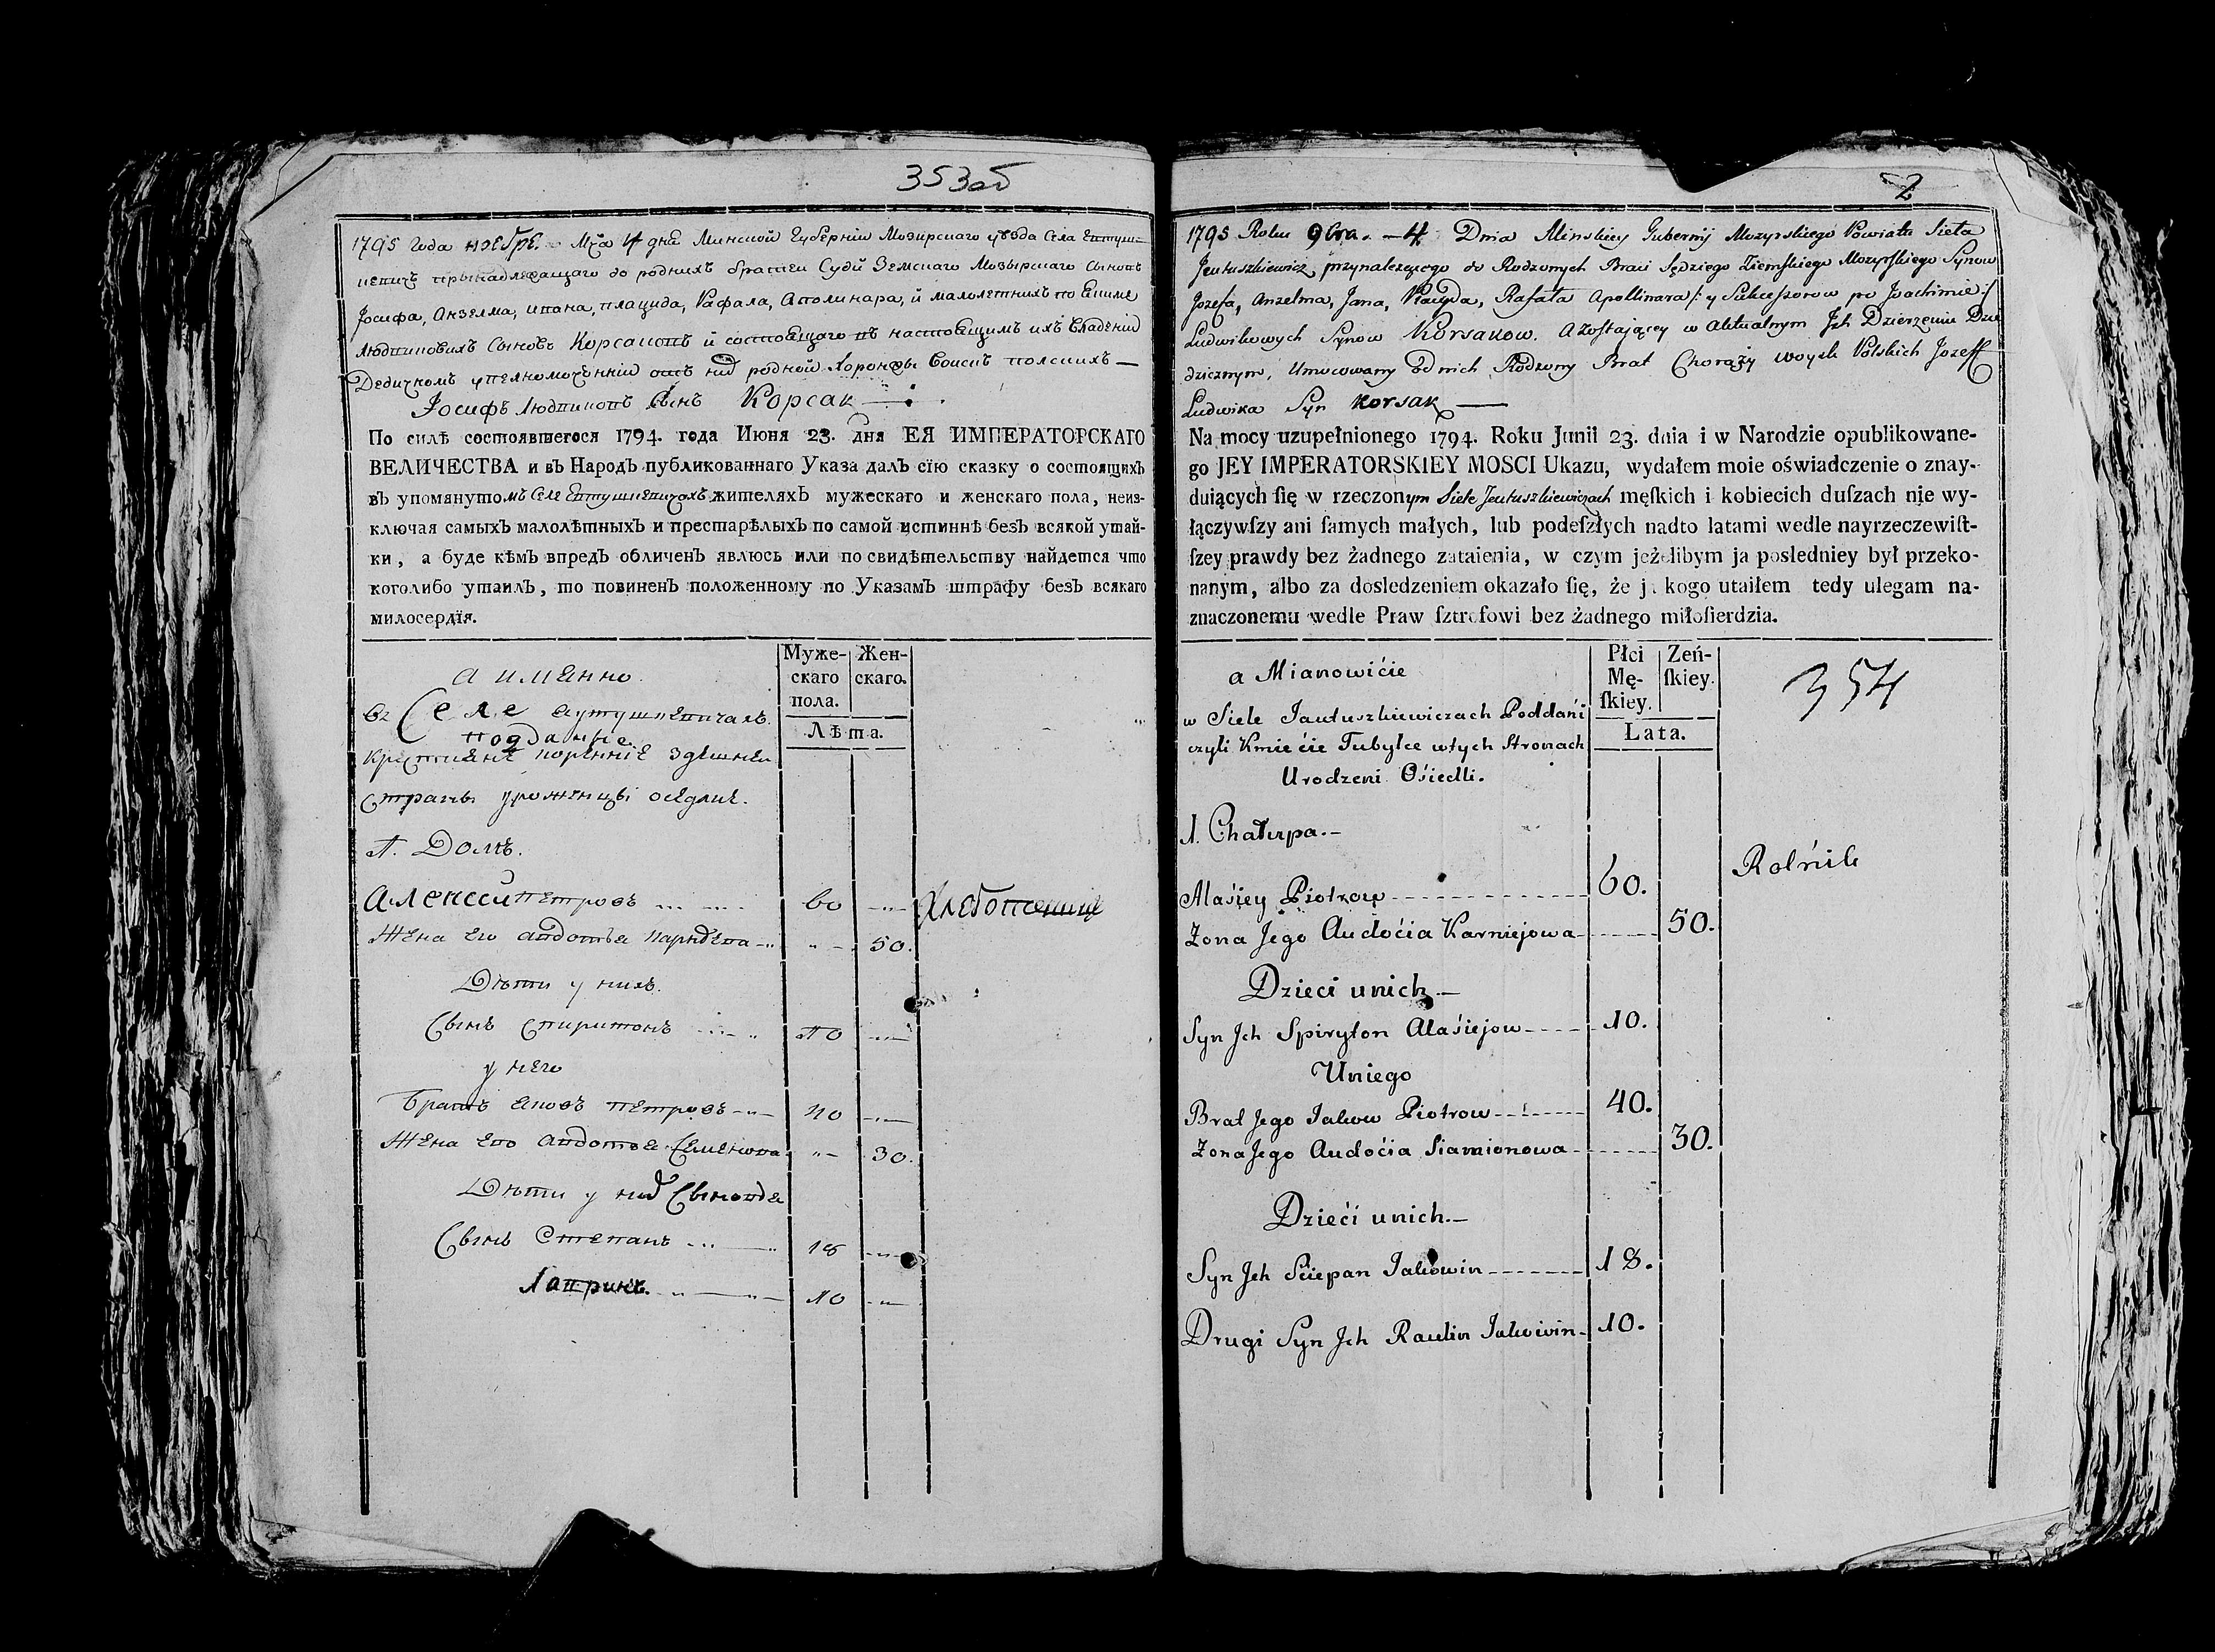 353об
1795 года ноебре. Мца 4 дня Минской Губернии Мозирскаго уезда Села
принадлежащаго до роднихъ братеи Суди Земскаго Мозырскаго Сыновъ
Иосифа, Анзелма, Ивана, Плацида, Рафала, Аполинара, и малолетнихъ по
Людвиковихъ Сыновъ Корсаковъ и состоящаго въ настоящимъ ихъ владении
Дедичномъ родной Хоронжы Воискъ полскихъ —
Іосифъ Людвиковъ Сынъ Корсак —
По силѣ состоявшегося 1794. года Июня 23. дня ЕЯ ИМПЕРАТОРСКАГО
ВЕЛИЧЕСТВА и въ Народъ публикованнаго Указа далъ сїю сказку о состоящихъ
въ упомянутомъ Селе Евтушкевичахъ жителяхъ мужескаго и женскаго пола, неиз-
ключая самыхъ малолѣтныхъ и престарѣлыхъ по самой истиннѣ безъ всякой утай-
ки, а буде кѣмъ впредъ обличенъ явлюсь или по свидѣтельству найдется что
коголибо утаилъ, то повиненъ положенному по Указамъ штрафу безъ всякаго
милосердїя.
а именно.
Муже-
скаго
пола.
Жен-
скаго.
Лѣта.
въ Селе Яутушкевичахъ
подданые
крестияне коренние здешнеи
страны уроженцы оседлие.
1. Домъ.
Алексеи Петровъ 60 Хлебопашец
Жена его Авдотья Карнеева 50.
Дети у нихъ.
Сынъ Спиритонъ 10
у него
Братъ Яковъ Петровъ 40
Жена его Авдотья Семенова 30.
Дети у них Сыновья
Сынъ Степанъ 18
Лавринъ. 10
2
1795 Roku 9bra. — 4. Dnia Minskiey Gubernij Mozyrskiego Powiatu Sieła
Jeutuszkiewicz przynalezącego do Rodzonych Braci Sędziego Ziemskiego Mozyrskiego Synow
Jozefa, Anzelma, Jana, Placyda, Rafała Apollinara /: y Sukcessorow po Joachimie :/
Ludwikowych Synow Korsakow. A zostaiącey w aktualnym Jch Dzierżeniu Dzie
dzicznym, Umocowany od nich Rodzony Brat Chorąży woysk Polskich Jozeff
Ludwika Syn Korsak —
Na mocy uzupełnionego 1794. Roku Junii 23. dnia i w Narodzie opublikowane-
go JEY IMPERATORSKIEY MOSCI Ukazu, wydałem moie oświadczenie o znay-
duiących ſię w rzeczonym Siele Jeutuszkiewiczach męſkich i kobiecich duſzach nie wy-
łączywſzy ani ſamych małych, lub podeſzłych nadto latami wedle nayrzeczewiſt-
ſzey prawdy bez żadnego zataienia, w czym jeżelibym ja posledniey był przeko-
nanym, albo za dosledzeniem okazało ſię, że ja kogo utaiłem tedy ulegam na-
znaczonemu wedle Praw ſztrofowi bez żadnego miłoſierdzia.
a Mianowićie
Płci
Mę-
ſkiey.
Zeń-
ſkiey.
Lata.
354
w Siele Jautuszkiewiczach Poddańi
czyli Kmiećie Tubylce wtych Stronach
Urodzeni Ośiedli.
1. Chałupa.—
Alaśiey Piotrow 60. Rolńik
Żona Jego Audoćia Karniejowa 50.
Dzieci unich.—
Syn Jch Spiryton Alaśiejow 10.
Uniego
Brat Jego Jakow Piotrow 40.
Żona Jego Audoćia Siamionowa 30.
Dzieći unich.—
Syn Jch Sciepan Jakowin 18.
Drugi Syn Jch Raulin Jakowin 10.